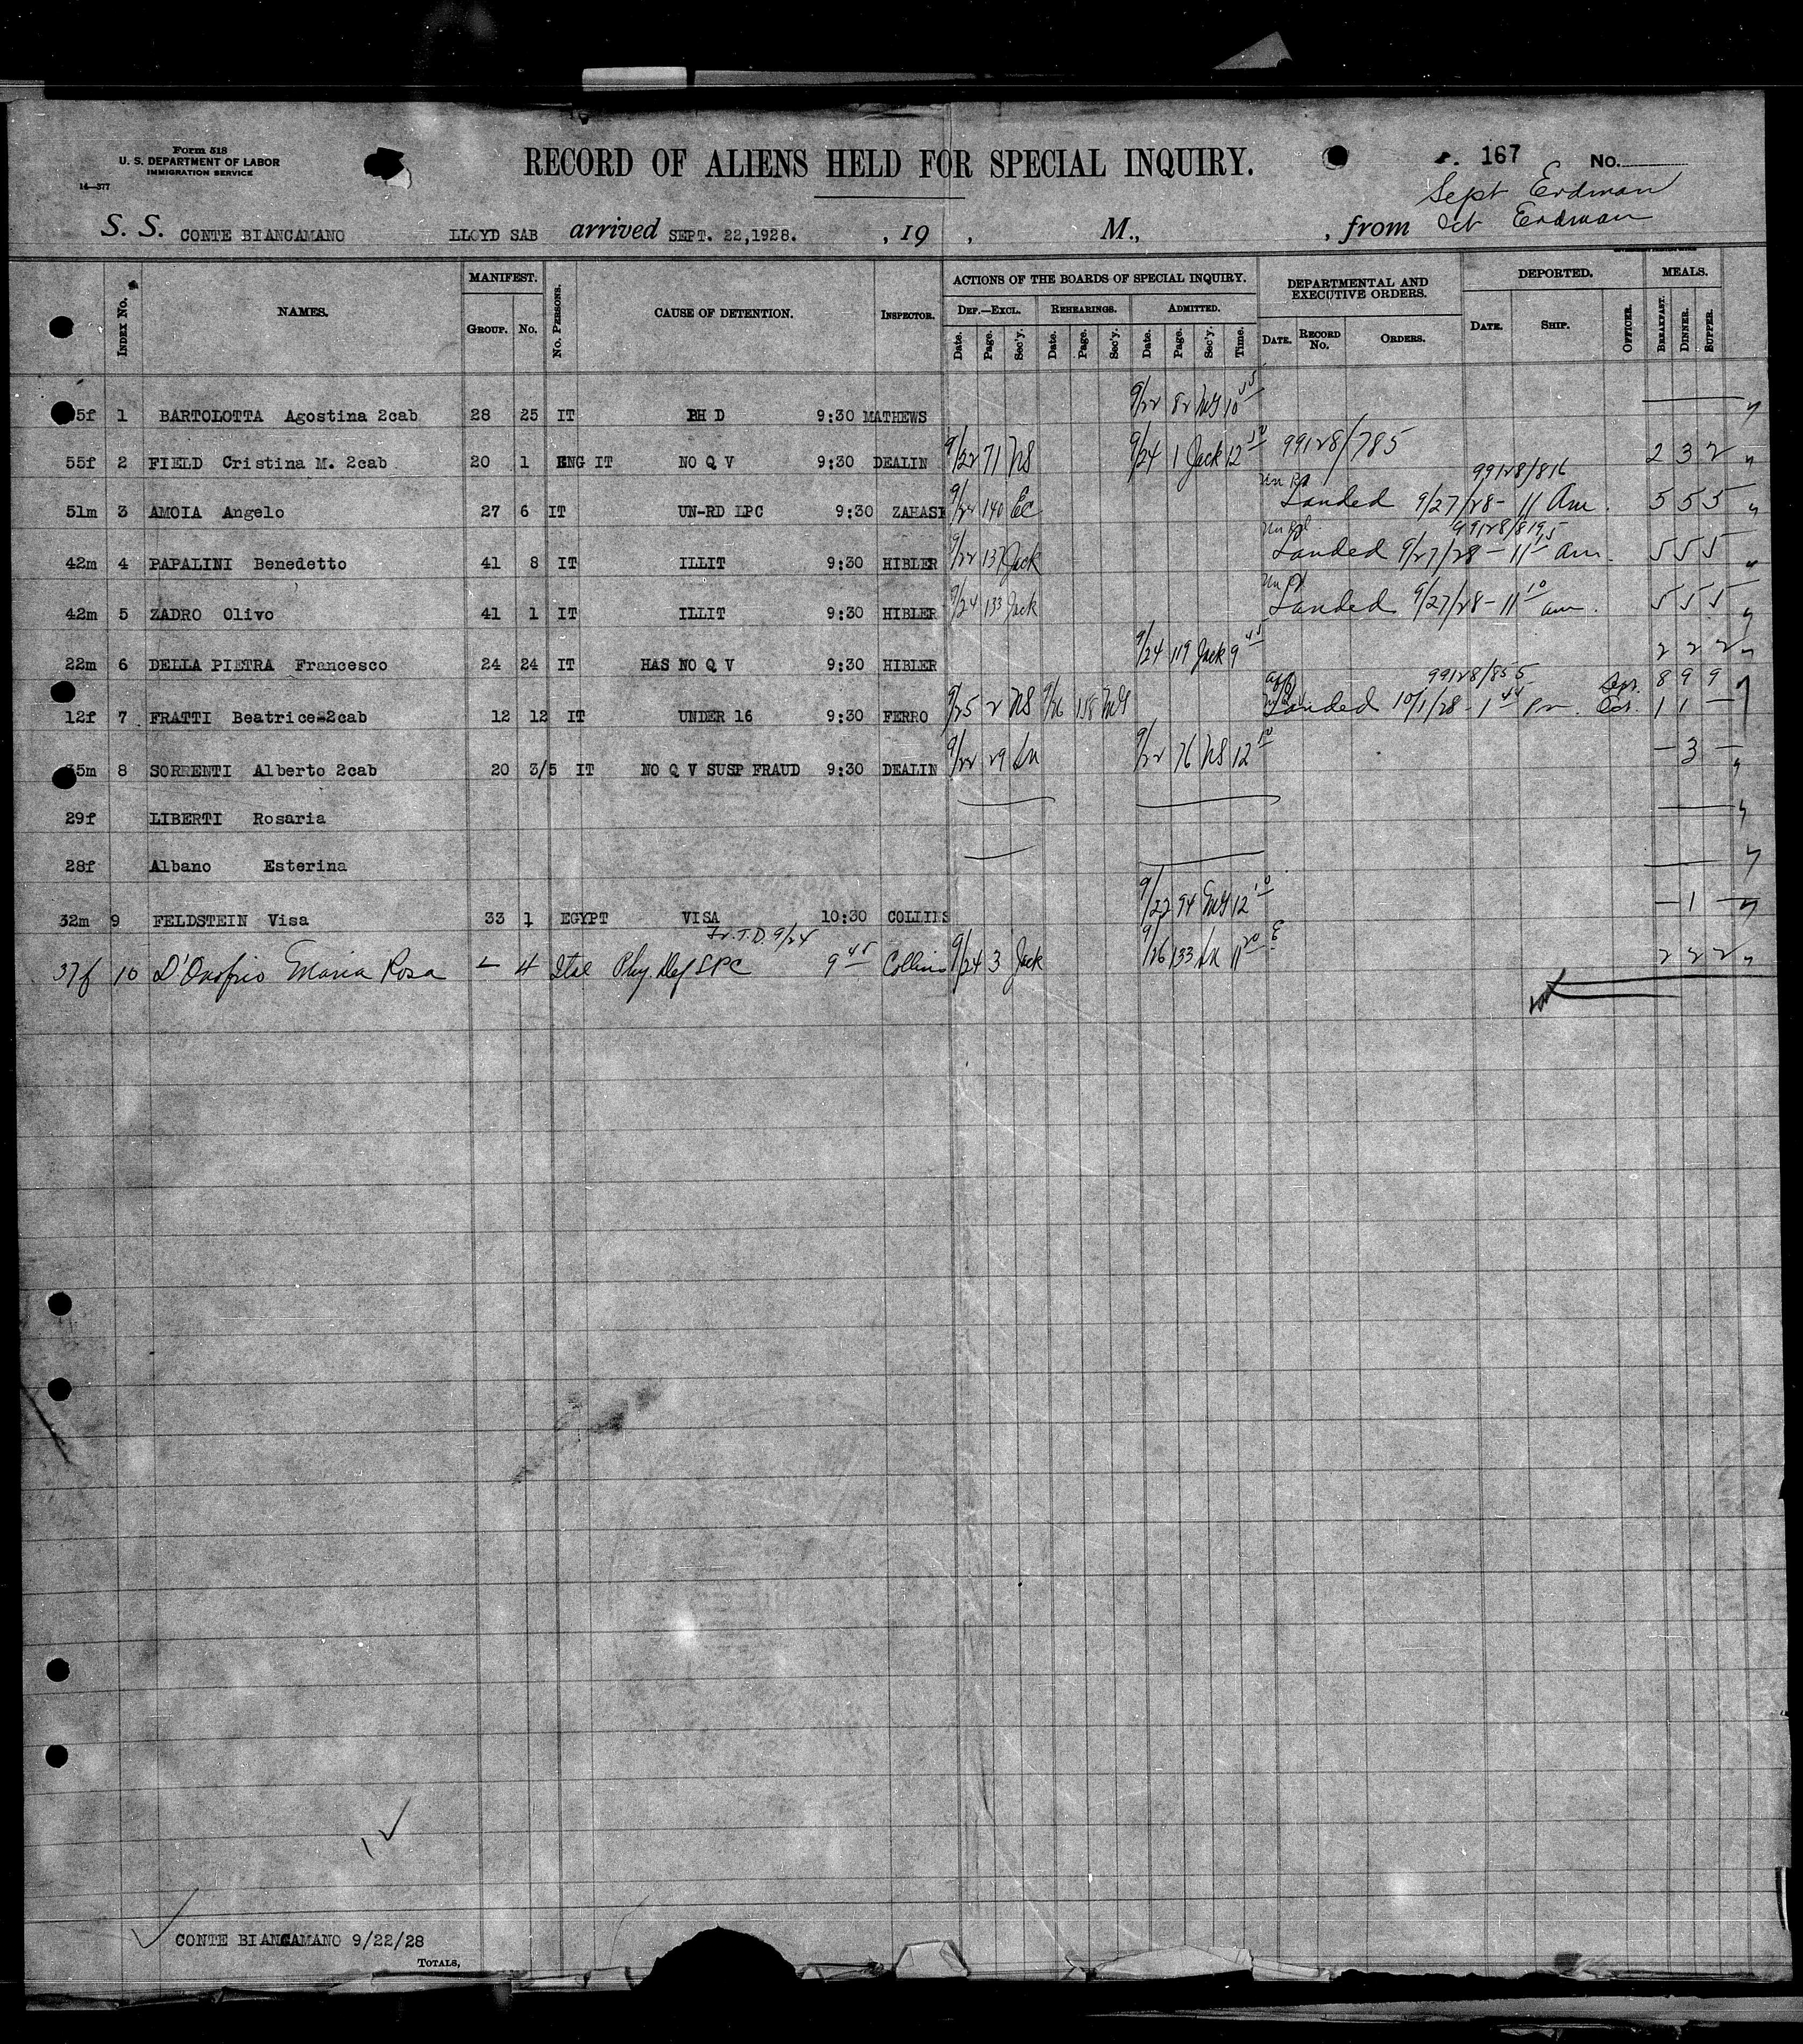 Form 518
U. S. DEPARTMENT OF LABOR
IMMIGRATION SERVICE
14—377
RECORD OF ALIENS HELD FOR SPECIAL INQUIRY.
167 No.
Sept Erdman
S. S. CONTE BIANCAMANO LLOYD SAB arrived SEPT. 22,1928. , 19 , M., , from Oct Erdman
INDEX No. NAMES. MANIFEST. GROUP. No. No. PERSONS. CAUSE OF DETENTION. INSPECTOR. ACTIONS OF THE BOARDS OF SPECIAL INQUIRY. DEPARTMENTAL AND EXECUTIVE ORDERS. DEPORTED. MEALS.
DEF.—EXCL. REHEARINGS. ADMITTED.
Date. Page. Sec'y. Date. Page. Sec'y. Date. Page. Sec'y. Time. DATE. RECORD No. ORDERS. DATE. SHIP. OFFICER. BREAKFAST. DINNER. SUPPER.
5f 1 BARTOLOTTA Agostina 2cab 28 25 IT PH D 9:30 MATHEWS 9/22 82 10
55f 2 FIELD Cristina M. 2cab 20 1 ENG IT NO Q V 9:30 DEALIN 9/22 71 NS 9/24 1 Jack 12 10 99128/785 2 3 2
99128/816
51m 3 AMOIA Angelo 27 6 IT UN-RD LPC 9:30 ZAHASI 9/22 140 EC Landed 9/27/28 - 11 Am. 5 5 5
42m 4 PAPALINI Benedetto 41 8 IT ILLIT 9:30 HIBLER 9/22 137 Jack Landed 9/27/28 - 11 15 am. 5 5 5
42m 5 ZADRO Olivo 41 1 IT ILLIT 9:30 HIBLER 9/24 133 Jack Landed 9/27/28 - 11 10 am. 5 5 5
22m 6 DELLA PIETRA Francesco 24 24 IT HAS NO Q V 9:30 HIBLER 9/24 119 Jack 9 45 2 2 2
99128/855 Sep. 8 9 9
12f 7 FRATTI Beatrice-2cab 12 12 IT UNDER 16 9:30 FERRO 9/25 2 NS 9/26 158 Landed 10/1/28 - 1 44 Pm. Oct. 1 1 —
35m 8 SORRENTI Alberto 2cab 20 3/5 IT NO Q V SUSP FRAUD 9:30 DEALIN 9/22 29 9/22 76 NS 12 10 — 3 —
29f LIBERTI Rosaria
28f Albano Esterina
32m 9 FELDSTEIN Visa 33 1 EGYPT VISA 10:30 COLLINS 9/22 94 12 10 — 1 —
Fr. T.D. 9/24
37f 10 D'Onofrio Maria Rosa — 4 Ital Phy Def LPC 9 45 Collins 9/24 3 Jack 9/26 133 11 20 2 2 2
CONTE BIANCAMANO 9/22/28
TOTALS,